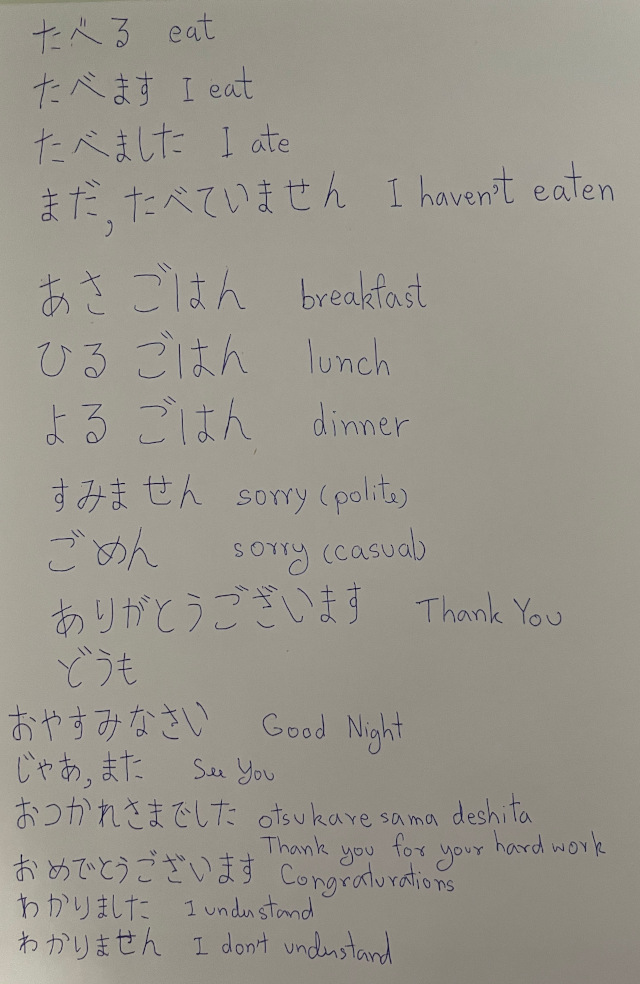 たべる eat
たべます I eat
たべました I ate
まだ, たべていません I haven't eaten
あさ ごはん breakfast
ひる ごはん lunch
よる ごはん dinner
すみません sorry (polite)
ごめん sorry (casual)
ありがとうございます Thank You
どうも
おやすみなさい Good Night
じゃあ, また See You
おつかれさまでした otsukare sama deshita
Thank you for your hard work
おめでとうございます Congraturations
わかりました I understand
わかりません I don't understand